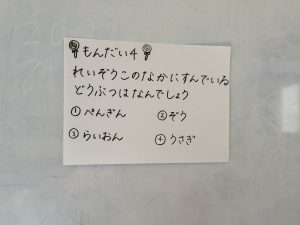 もんだい4
れいぞうこのなかにすんでいる
どうぶつはなんでしょう
① ぺんぎん ② ぞう
③ らいおん ④ うさぎ